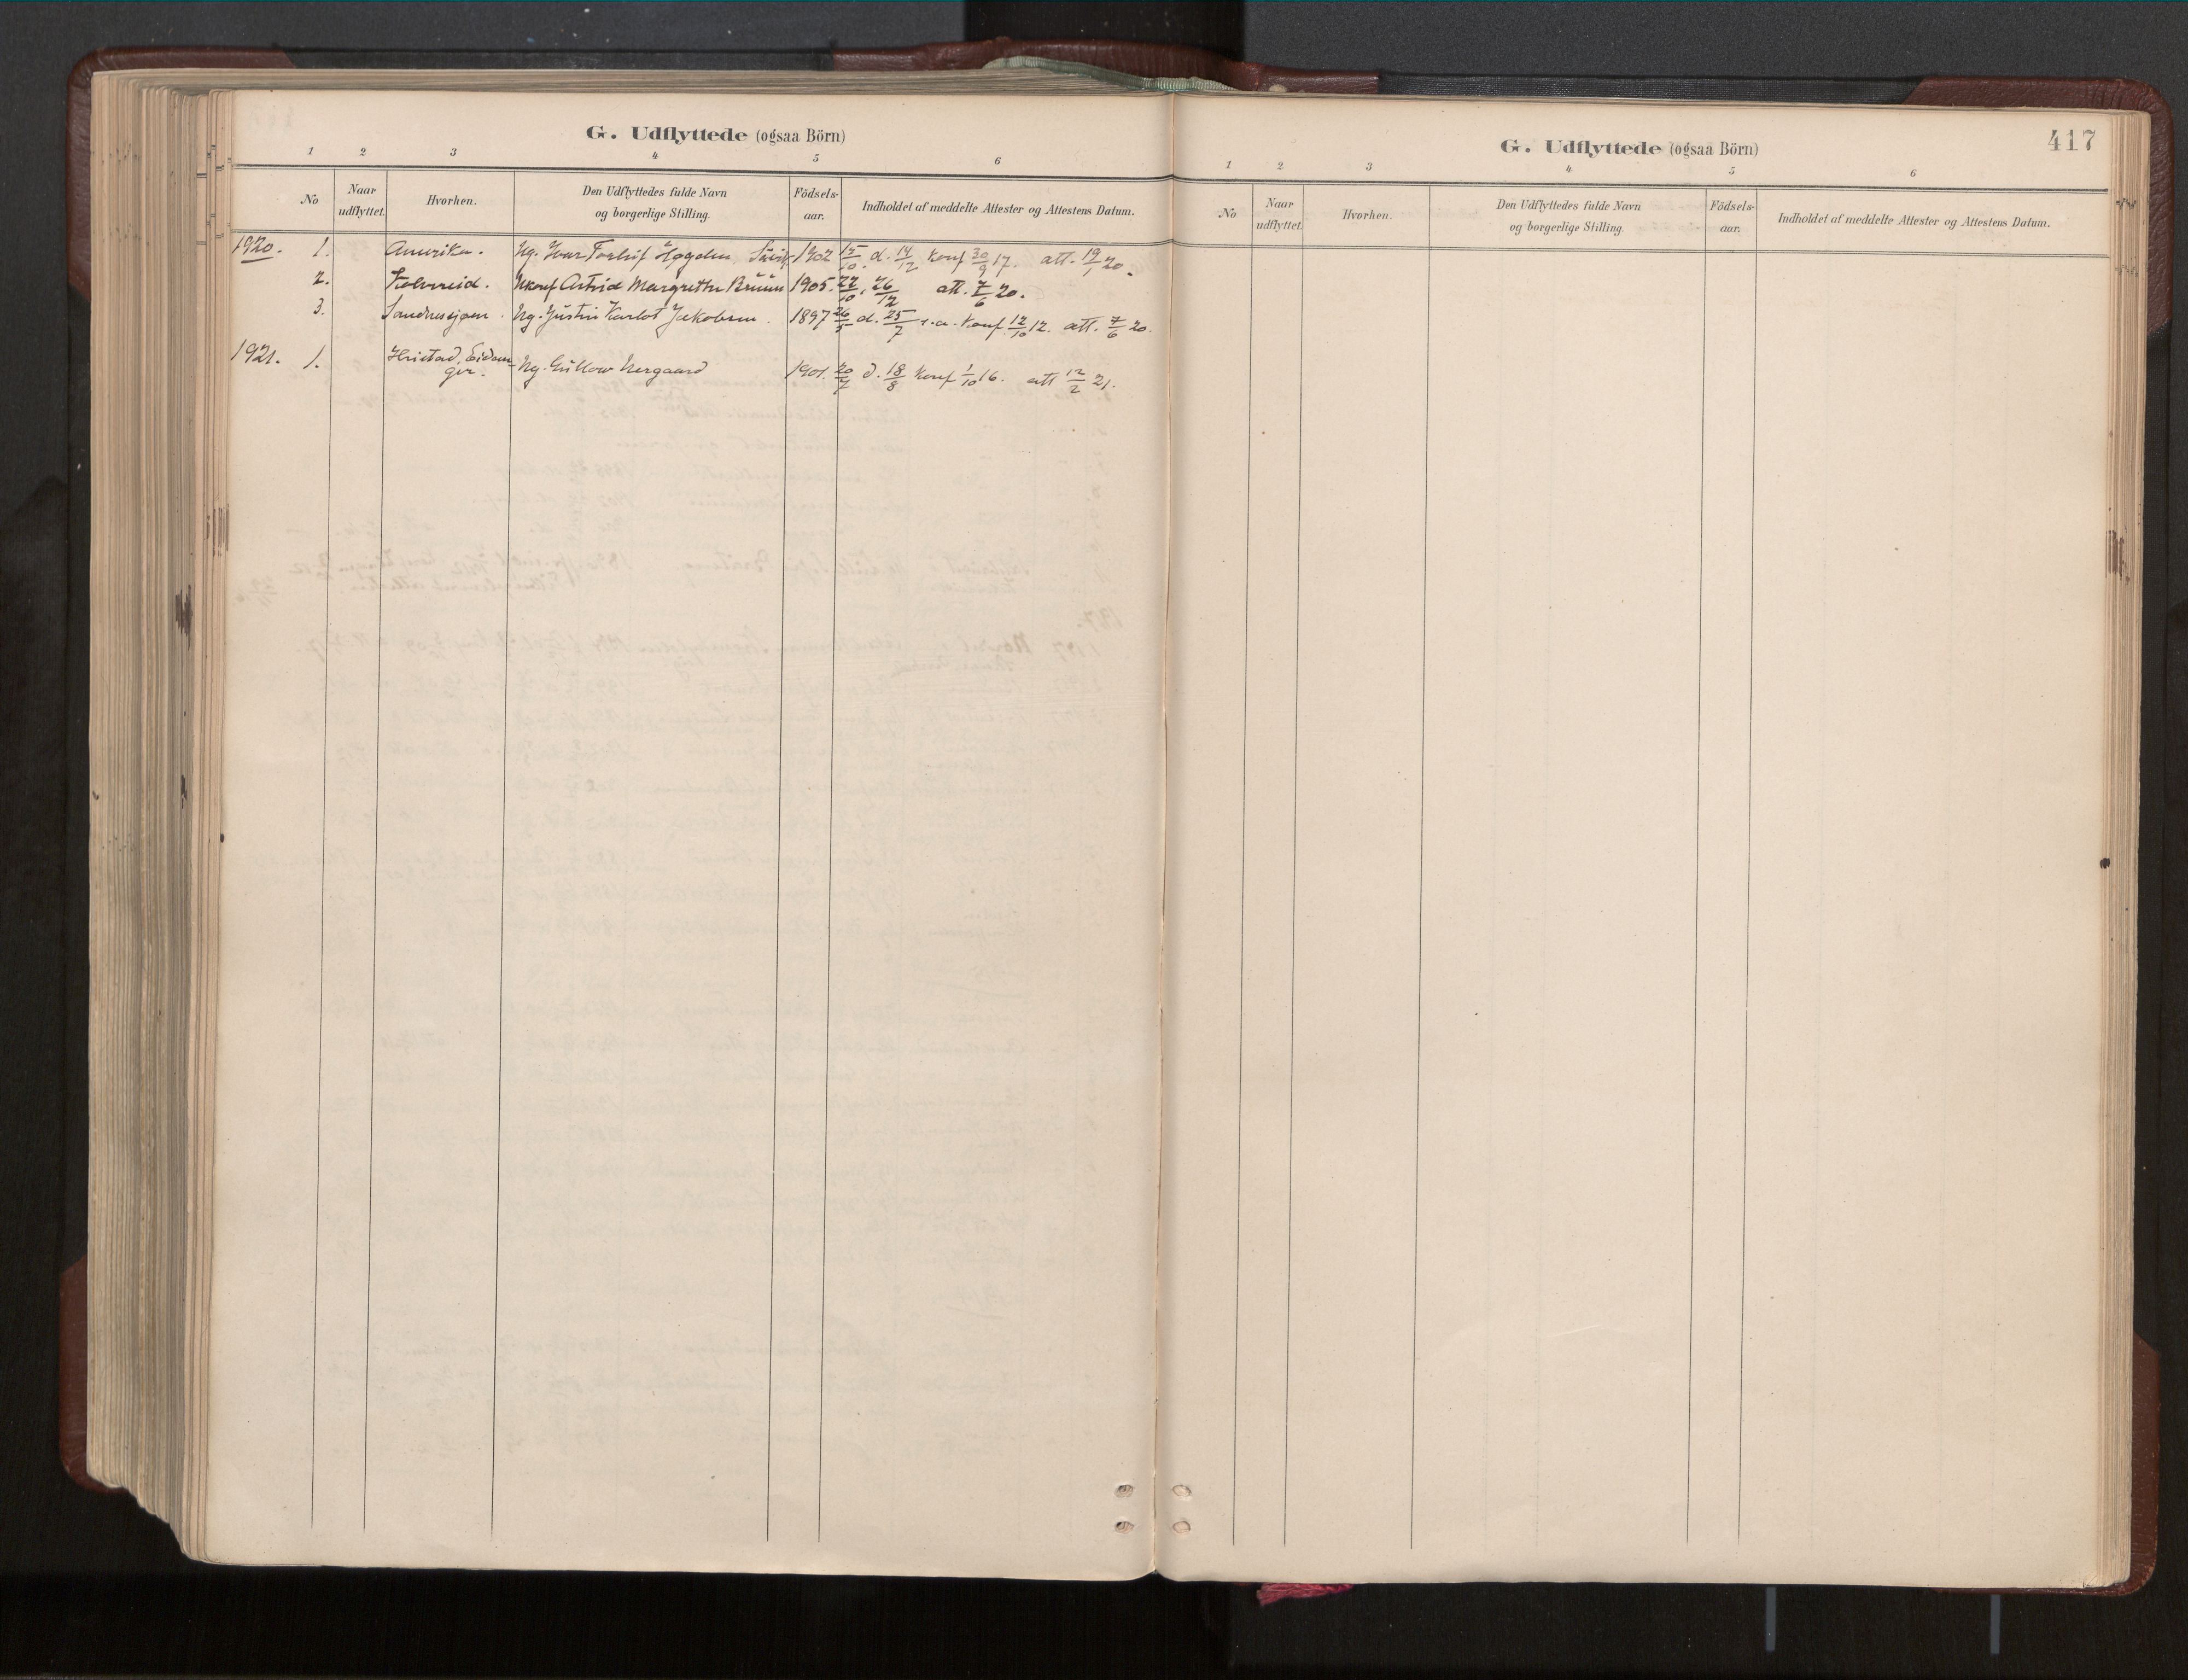 G. Udflyttede (ogsaa Börn)
1 2 3 4 5 6
No Naar udflyttet. Hvorhen. Den Udflyttedes fulde Navn og borgerlige Stilling. Födsels-aar. Indholdet af meddelte Attester og Attestens Datum.
1920. 1. Amerika. Ug. Ivar Torleif 1902 15/10. d. 14/12 Konf 30/9 17. att. 19/1 20.
2. Kolvereid. Ukonf Astrid Margrethe Brüun 1905. 22/10, 26/12 att. 7/6 20.
3. Sandnessjøen. Ug. Justin Karlot Jakobsen. 1897 26/5 d. 25/7 s.a. Konf. 12/10 12. att. 7/6 20.
1921. 1. Eidan-
ger. Ug. Nergaard 1901. 20/7 d. 18/8 Konf 1/10 16. att 12/2 21.
417
G. Udflyttede (ogsaa Börn)
1 2 3 4 5 6
No Naar udflyttet. Hvorhen. Den Udflyttedes fulde Navn og borgerlige Stilling. Födsels-aar. Indholdet af meddelte Attester og Attestens Datum.